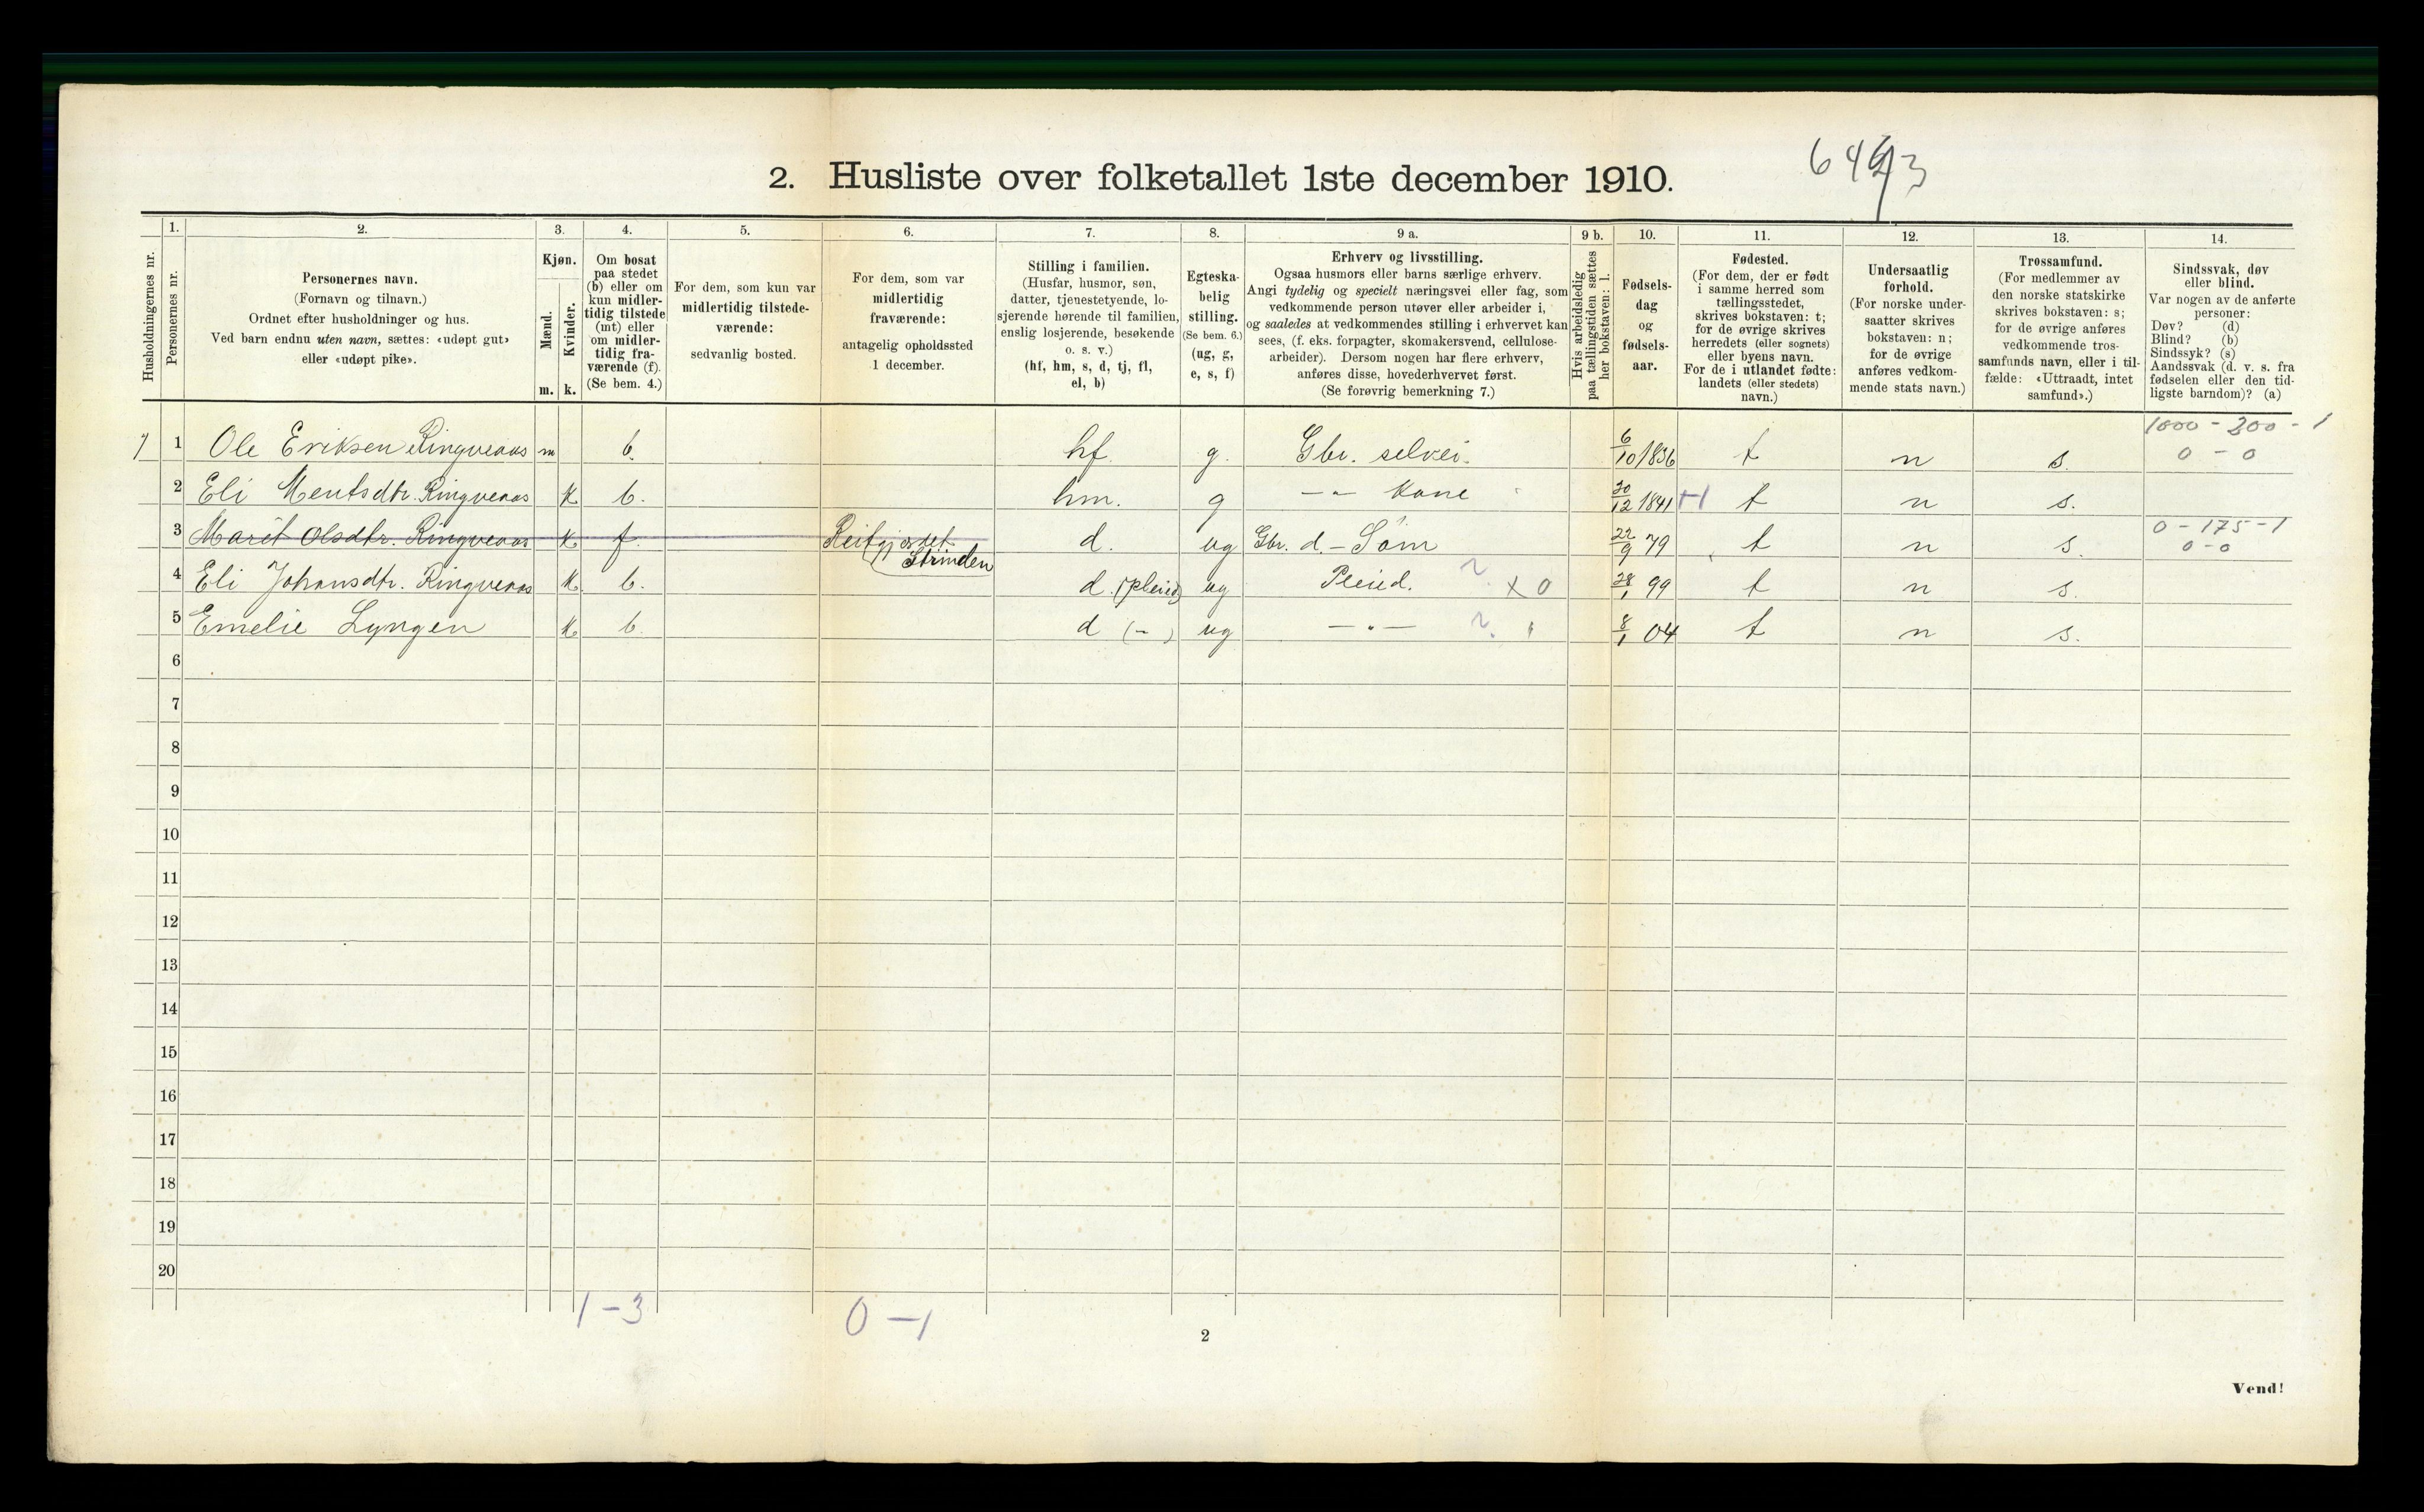 2. Husliste over folketallet 1ste december 1910.
Husholdningernes nr.
1.
Personernes nr.
2.
Personernes navn.
(Fornavn og tilnavn.)
Ordnet efter husholdninger og hus.
Ved barn endnu uten navn, sættes: «udøpt gut»
eller «udøpt pike».
3.
Kjøn.
Mænd.
Kvinder.
m. k.
4.
Om bosat
paa stedet
(b) eller om
kun midler-
tidig tilstede
(mt) eller
om midler-
tidig fra-
værende (f).
(Se bem. 4.)
5.
For dem, som kun var
midlertidig tilstede-
værende:
sedvanlig bosted.
6.
For dem, som var
midlertidig
fraværende:
antagelig opholdssted
1 december.
7.
Stilling i familien.
(Husfar, husmor, søn,
datter, tjenestetyende, lo-
sjerende hørende til familien,
enslig losjerende, besøkende
o. s. v.)
(hf, hm, s, d, tj, fl,
el, b)
8.
Egteska-
belig
stilling.
(Se bem. 6.)
(ug, g,
e, s, f)
9 a.
Erhverv og livsstilling.
Ogsaa husmors eller barns særlige erhverv.
Angi tydelig og specielt næringsvei eller fag, som
vedkommende person utøver eller arbeider i,
og saaledes at vedkommendes stilling i erhvervet kan
sees, (f. eks. forpagter, skomakersvend, cellulose-
arbeider). Dersom nogen har flere erhverv,
anføres disse, hovederhvervet først.
(Se forøvrig bemerkning 7.)
9 b.
Hvis arbeidsledig
paa tællingstiden sættes
her bokstaven: l.
10.
Fødsels-
dag
og
fødsels-
aar.
11.
Fødested.
(For dem, der er født
i samme herred som
tællingsstedet,
skrives bokstaven: t;
for de øvrige skrives
herredets (eller sognets)
eller byens navn.
For de i utlandet fødte:
landets (eller stedets)
navn.)
12.
Undersaatlig
forhold.
(For norske under-
saatter skrives
bokstaven: n;
for de øvrige
anføres vedkom-
mende stats navn.)
13.
Trossamfund.
(For medlemmer av
den norske statskirke
skrives bokstaven: s;
for de øvrige anføres
vedkommende tros-
samfunds navn, eller i til-
fælde: «Uttraadt, intet
samfund».)
14.
Sindssvak, døv
eller blind.
Var nogen av de anførte
personer:
Døv? (d)
Blind? (b)
Sindssyk? (s)
Aandssvak (d. v. s. fra
fødselen eller den tid-
ligste barndom)? (a)
1 Ole Eriksen Ringveaas m b. hf. g. Gbr. selvei. 6/10 1836 t n s. 1000 - 200 - 1
0 - 0
2 Eli Mentsdtr. Ringveaas k b. hm. g -"- Kone 30/12 1841 t n s.
3 Marit Olsdtr. Ringveaas k f. Reitgjerdet Strinden d. ug Gbr. d. - Söm 22/9 79 t n s. 0 - 175 - 1
0 - 0
4 Eli Johansdtr. Ringveaas k b. d. (pleied) ug Pleied. x 0 28/1 99 t n s.
5 Emelie Lyngen k b d (-) ug -"- 8/1 04 t n s.
6
7
8
9
10
11
12
13
14
15
16
17
18
19
20
1 - 3
0 - 1
2
Vend!